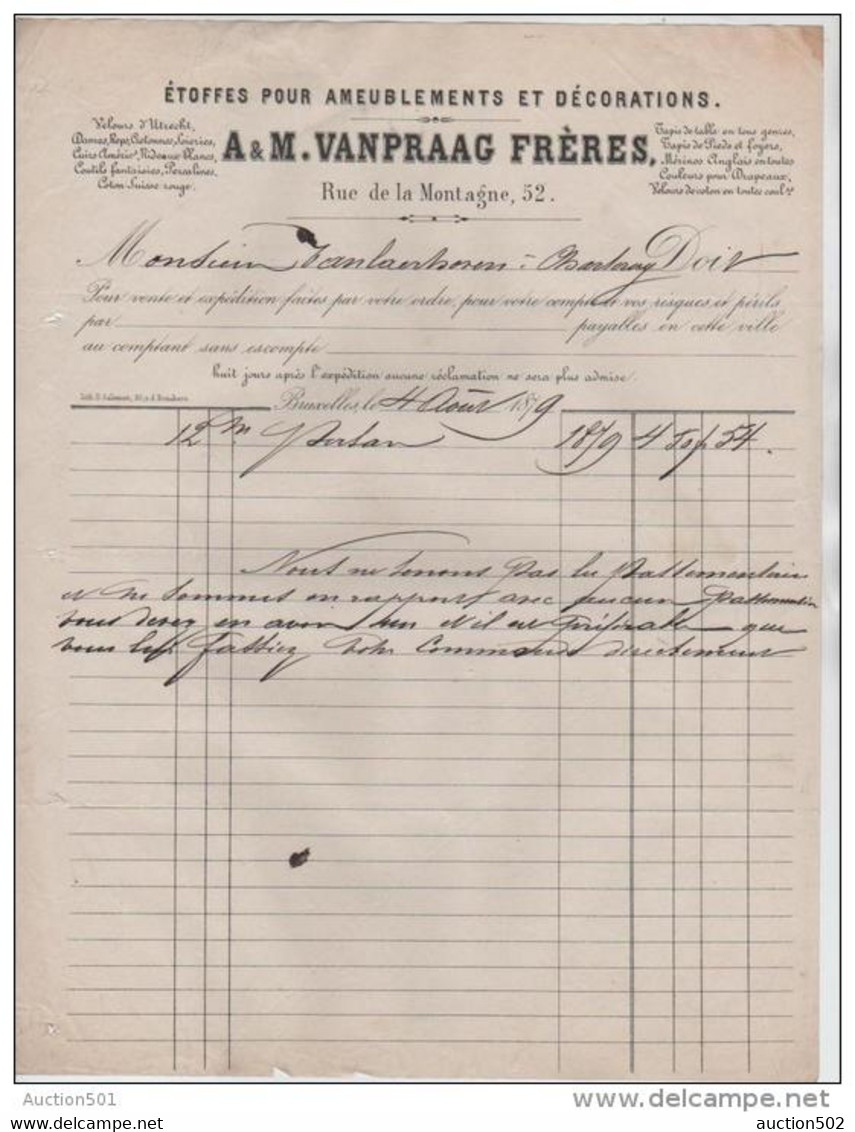 ÉTOFFES POUR AMEUBLEMENTS ET DÉCORATIONS.
Velours d'Utrecht,
Damas, Reps, Cretonnes, Soieries,
Cuirs Améric.s, Rideaux blancs,
Coutils fantaisies, Percalines,
Coton Suisse rouge.
A & M. VANPRAAG FRÈRES,
Rue de la Montagne, 52.
Tapis de table en tous genres,
Tapis de Pieds et foyers,
Mérinos Anglais en toutes
Couleurs pour Drapeaux,
Velours de coton en toutes coul.rs
Monsieur Vanlaerhoven à Charleroy Doit
Pour vente et expédition faites par votre ordre, pour votre compte & vos risques et périls
par payables en cette ville
au comptant sans escompte
huit jours après l'expédition aucune réclamation ne sera plus admise.
Bruxelles, le 4 Août 1879
12 m 1879 4 54
Nous ne tenons pas les passementeries
et ne sommes en rapport avec aucun passementier
vous devez en avoir un et il est que
vous lui fassiez votre commande directement
Auction501
delcampe.net
auction502